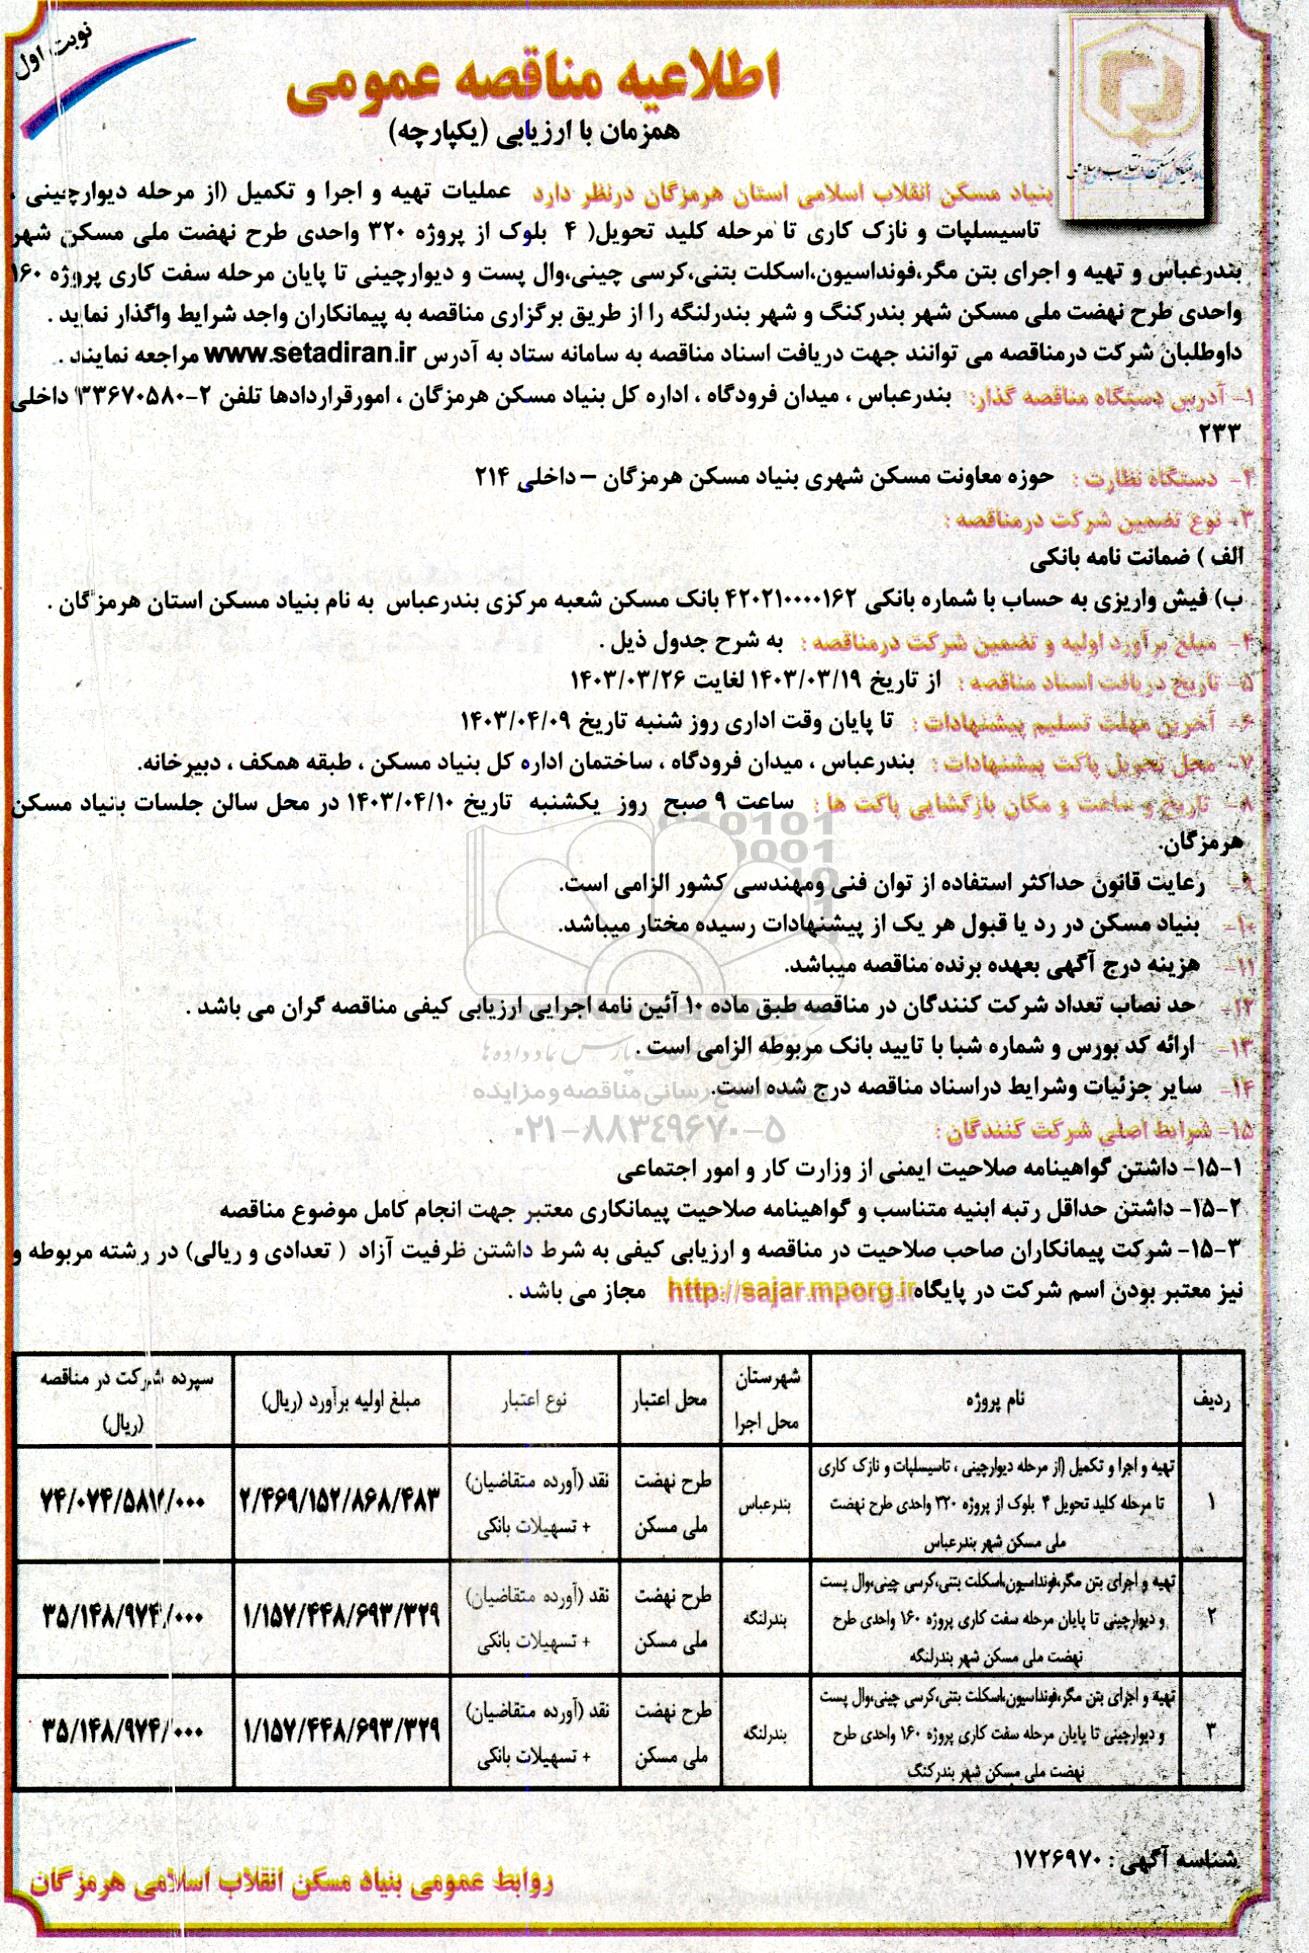 نوبت اول
اطلاعیه مناقصه عمومی
همزمان با ارزیابی (یکپارچه)
بنیاد مسکن انقلاب اسلامی استان هرمزگان درنظر دارد عملیات تهیه و اجرا و تکمیل (از مرحله دیوارچینی ،
تاسیسلپات و نازک کاری تا مرحله کلید تحویل( ۴ بلوک از پروژه ۳۲۰ واحدی طرح نهضت ملی مسکن شهر
بندرعباس و تهیه و اجرای بتن مگر،فونداسیون،اسکلت بتنی،کرسی چینی،وال پست و دیوارچینی تا پایان مرحله سفت کاری پروژه ۱۶۰
واحدی طرح نهضت ملی مسکن شهر بندرکنگ و شهر بندرلنگه را از طریق برگزاری مناقصه به پیمانکاران واجد شرایط واگذار نماید .
داوطلبان شرکت درمناقصه می توانند جهت دریافت اسناد مناقصه به سامانه ستاد به آدرس www.setadiran.ir مراجعه نمایند .
۱- آدرس دستگاه مناقصه گذار: بندرعباس ، میدان فرودگاه ، اداره کل بنیاد مسکن هرمزگان ، امورقراردادها تلفن ۲-۳۳۶۷۰۵۸۰ داخلی
۲۳۳
۲- دستگاه نظارت : حوزه معاونت مسکن شهری بنیاد مسکن هرمزگان – داخلی ۲۱۴
۳- نوع تضمین شرکت درمناقصه :
الف ) ضمانت نامه بانکی
ب) فیش واریزی به حساب با شماره بانکی ۴۲۰۲۱۰۰۰۰۱۶۲ بانک مسکن شعبه مرکزی بندرعباس به نام بنیاد مسکن استان هرمزگان .
۴- مبلغ برآورد اولیه و تضمین شرکت درمناقصه : به شرح جدول ذیل .
۵- تاریخ دریافت اسناد مناقصه : از تاریخ ۱۴۰۳/۰۳/۱۹ لغایت ۱۴۰۳/۰۳/۲۶
۶- آخرین مهلت تسلیم پیشنهادات : تا پایان وقت اداری روز شنبه تاریخ ۱۴۰۳/۰۴/۰۹
۷- محل تحویل پاکت پیشنهادات : بندرعباس ، میدان فرودگاه ، ساختمان اداره کل بنیاد مسکن ، طبقه همکف ، دبیرخانه.
۸- تاریخ و ساعت و مکان بازگشایی پاکت ها : ساعت ۹ صبح روز یکشنبه تاریخ ۱۴۰۳/۰۴/۱۰ در محل سالن جلسات بنیاد مسکن
هرمزگان.
۹- رعایت قانون حداکثر استفاده از توان فنی ومهندسی کشور الزامی است.
۱۰- بنیاد مسکن در رد یا قبول هر یک از پیشنهادات رسیده مختار میباشد.
۱۱- هزینه درج آگهی بعهده برنده مناقصه میباشد.
۱۲- حد نصاب تعداد شرکت کنندگان در مناقصه طبق ماده ۱۰ آئین نامه اجرایی ارزیابی کیفی مناقصه گران می باشد .
۱۳- ارائه کد بورس و شماره شبا با تایید بانک مربوطه الزامی است .
۱۴- سایر جزئیات وشرایط دراسناد مناقصه درج شده است.
رسانی مناقصه و مزایده
۰۲۱-۸۸۳۴۹۶۷۰-۵
۱۵- شرایط اصلی شرکت کنندگان :
۱۵-۱- داشتن گواهینامه صلاحیت ایمنی از وزارت کار و امور اجتماعی
۱۵-۲- داشتن حداقل رتبه ابنیه متناسب و گواهینامه صلاحیت پیمانکاری معتبر جهت انجام کامل موضوع مناقصه
۱۵-۳- شرکت پیمانکاران صاحب صلاحیت در مناقصه و ارزیابی کیفی به شرط داشتن ظرفیت آزاد ( تعدادی و ریالی) در رشته مربوطه و
نیز معتبر بودن اسم شرکت در پایگاه http://sajar.mporg.ir مجاز می باشد .
ردیف
نام پروژه
شهرستان
محل اجرا
محل اعتبار
نوع اعتبار
مبلغ اولیه برآورد (ریال)
سپرده شرکت در مناقصه
(ریال)
۱
تهیه و اجرا و تکمیل (از مرحله دیوارچینی ، تاسیسلپات و نازک کاری
تا مرحله کلید تحویل ۴ بلوک از پروژه ۳۲۰ واحدی طرح نهضت
ملی مسکن شهر بندرعباس
بندرعباس
طرح نهضت
ملی مسکن
نقد (آورده متقاضیان)
+ تسهیلات بانکی
۲/۴۶۹/۱۵۲/۸۶۸/۴۸۳
۷۴/۰۷۴/۵۸۷/۰۰۰
۲
تهیه و اجرای بتن مگر،فونداسیون،اسکلت بتنی،کرسی چینی،وال پست
و دیوارچینی تا پایان مرحله سفت کاری پروژه ۱۶۰ واحدی طرح
نهضت ملی مسکن شهر بندرلنگه
بندرلنگه
طرح نهضت
ملی مسکن
نقد (آورده متقاضیان)
+ تسهیلات بانکی
۱/۱۵۷/۴۴۸/۶۹۳/۳۲۹
۳۵/۱۴۸/۹۷۴/۰۰۰
۳
تهیه و اجرای بتن مگر،فونداسیون،اسکلت بتنی،کرسی چینی،وال پست
و دیوارچینی تا پایان مرحله سفت کاری پروژه ۱۶۰ واحدی طرح
نهضت ملی مسکن شهر بندرکنگ
بندرلنگه
طرح نهضت
ملی مسکن
نقد (آورده متقاضیان)
+ تسهیلات بانکی
۱/۱۵۷/۴۴۸/۶۹۳/۳۲۹
۳۵/۱۴۸/۹۷۴/۰۰۰
شناسه آگهی : ۱۷۲۶۹۷۰
روابط عمومی بنیاد مسکن انقلاب اسلامی هرمزگان